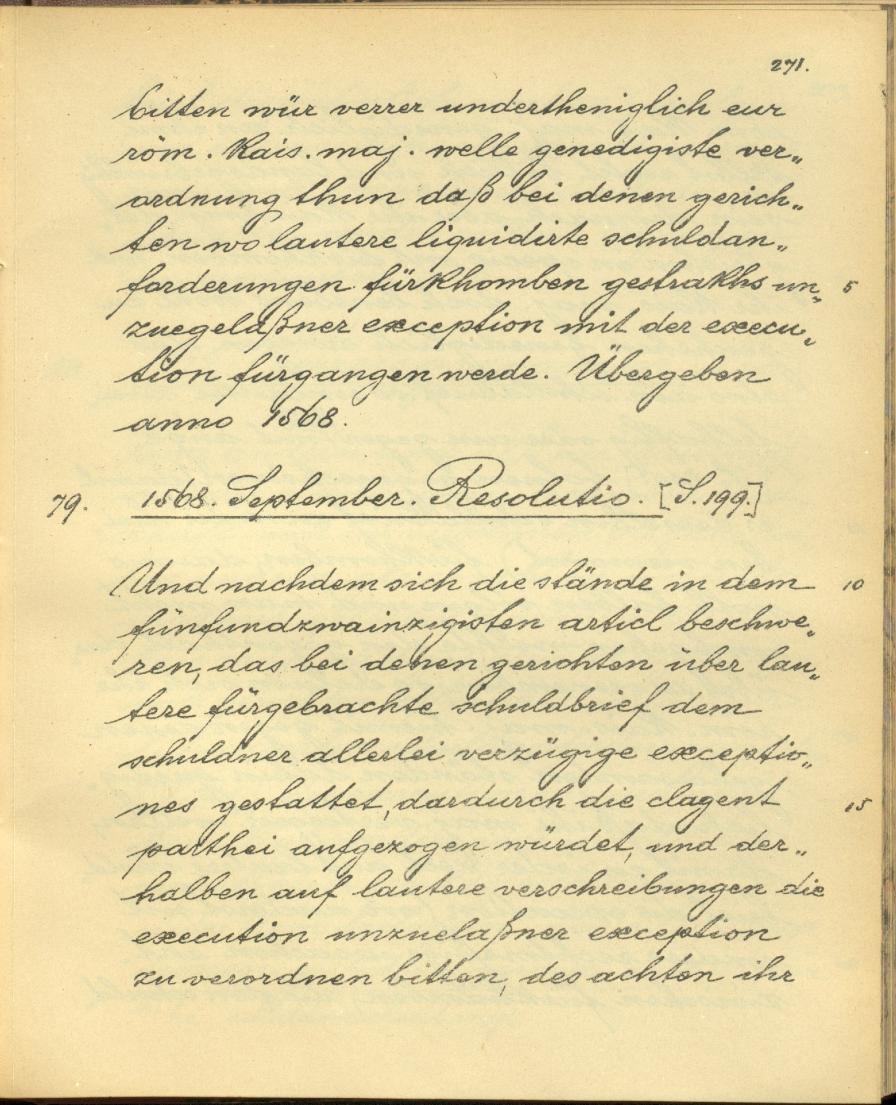 271.
bitten wür verrer undertheniglich eur
röm. Kais. maj. welle genedigiste ver„
ordnung thun daß bei denen gerich„
ten wo lautere liquidirte schuldan„
forderungen fürkhomben gestrakhs un„ 5
zuegelaßner exception mit der execu„
tion fürgangen werde. Übergeben
anno 1568.
79. 1568. September. Resolutio. [S. 199.]
Und nachdem sich die stände in dem 10
fünfundzwainzigisten articl beschwe„
ren, das bei denen gerichten über lau„
tere fürgebrachte schuldbrief dem
schuldner allerlei verzügige exceptio„
nes gestattet, dardurch die clagent 15
parthei aufgezogen würdet, und der„
halben auf lautere verschreibungen die
execution unzuelaßner exception
zu verordnen bitten, des achten ihr